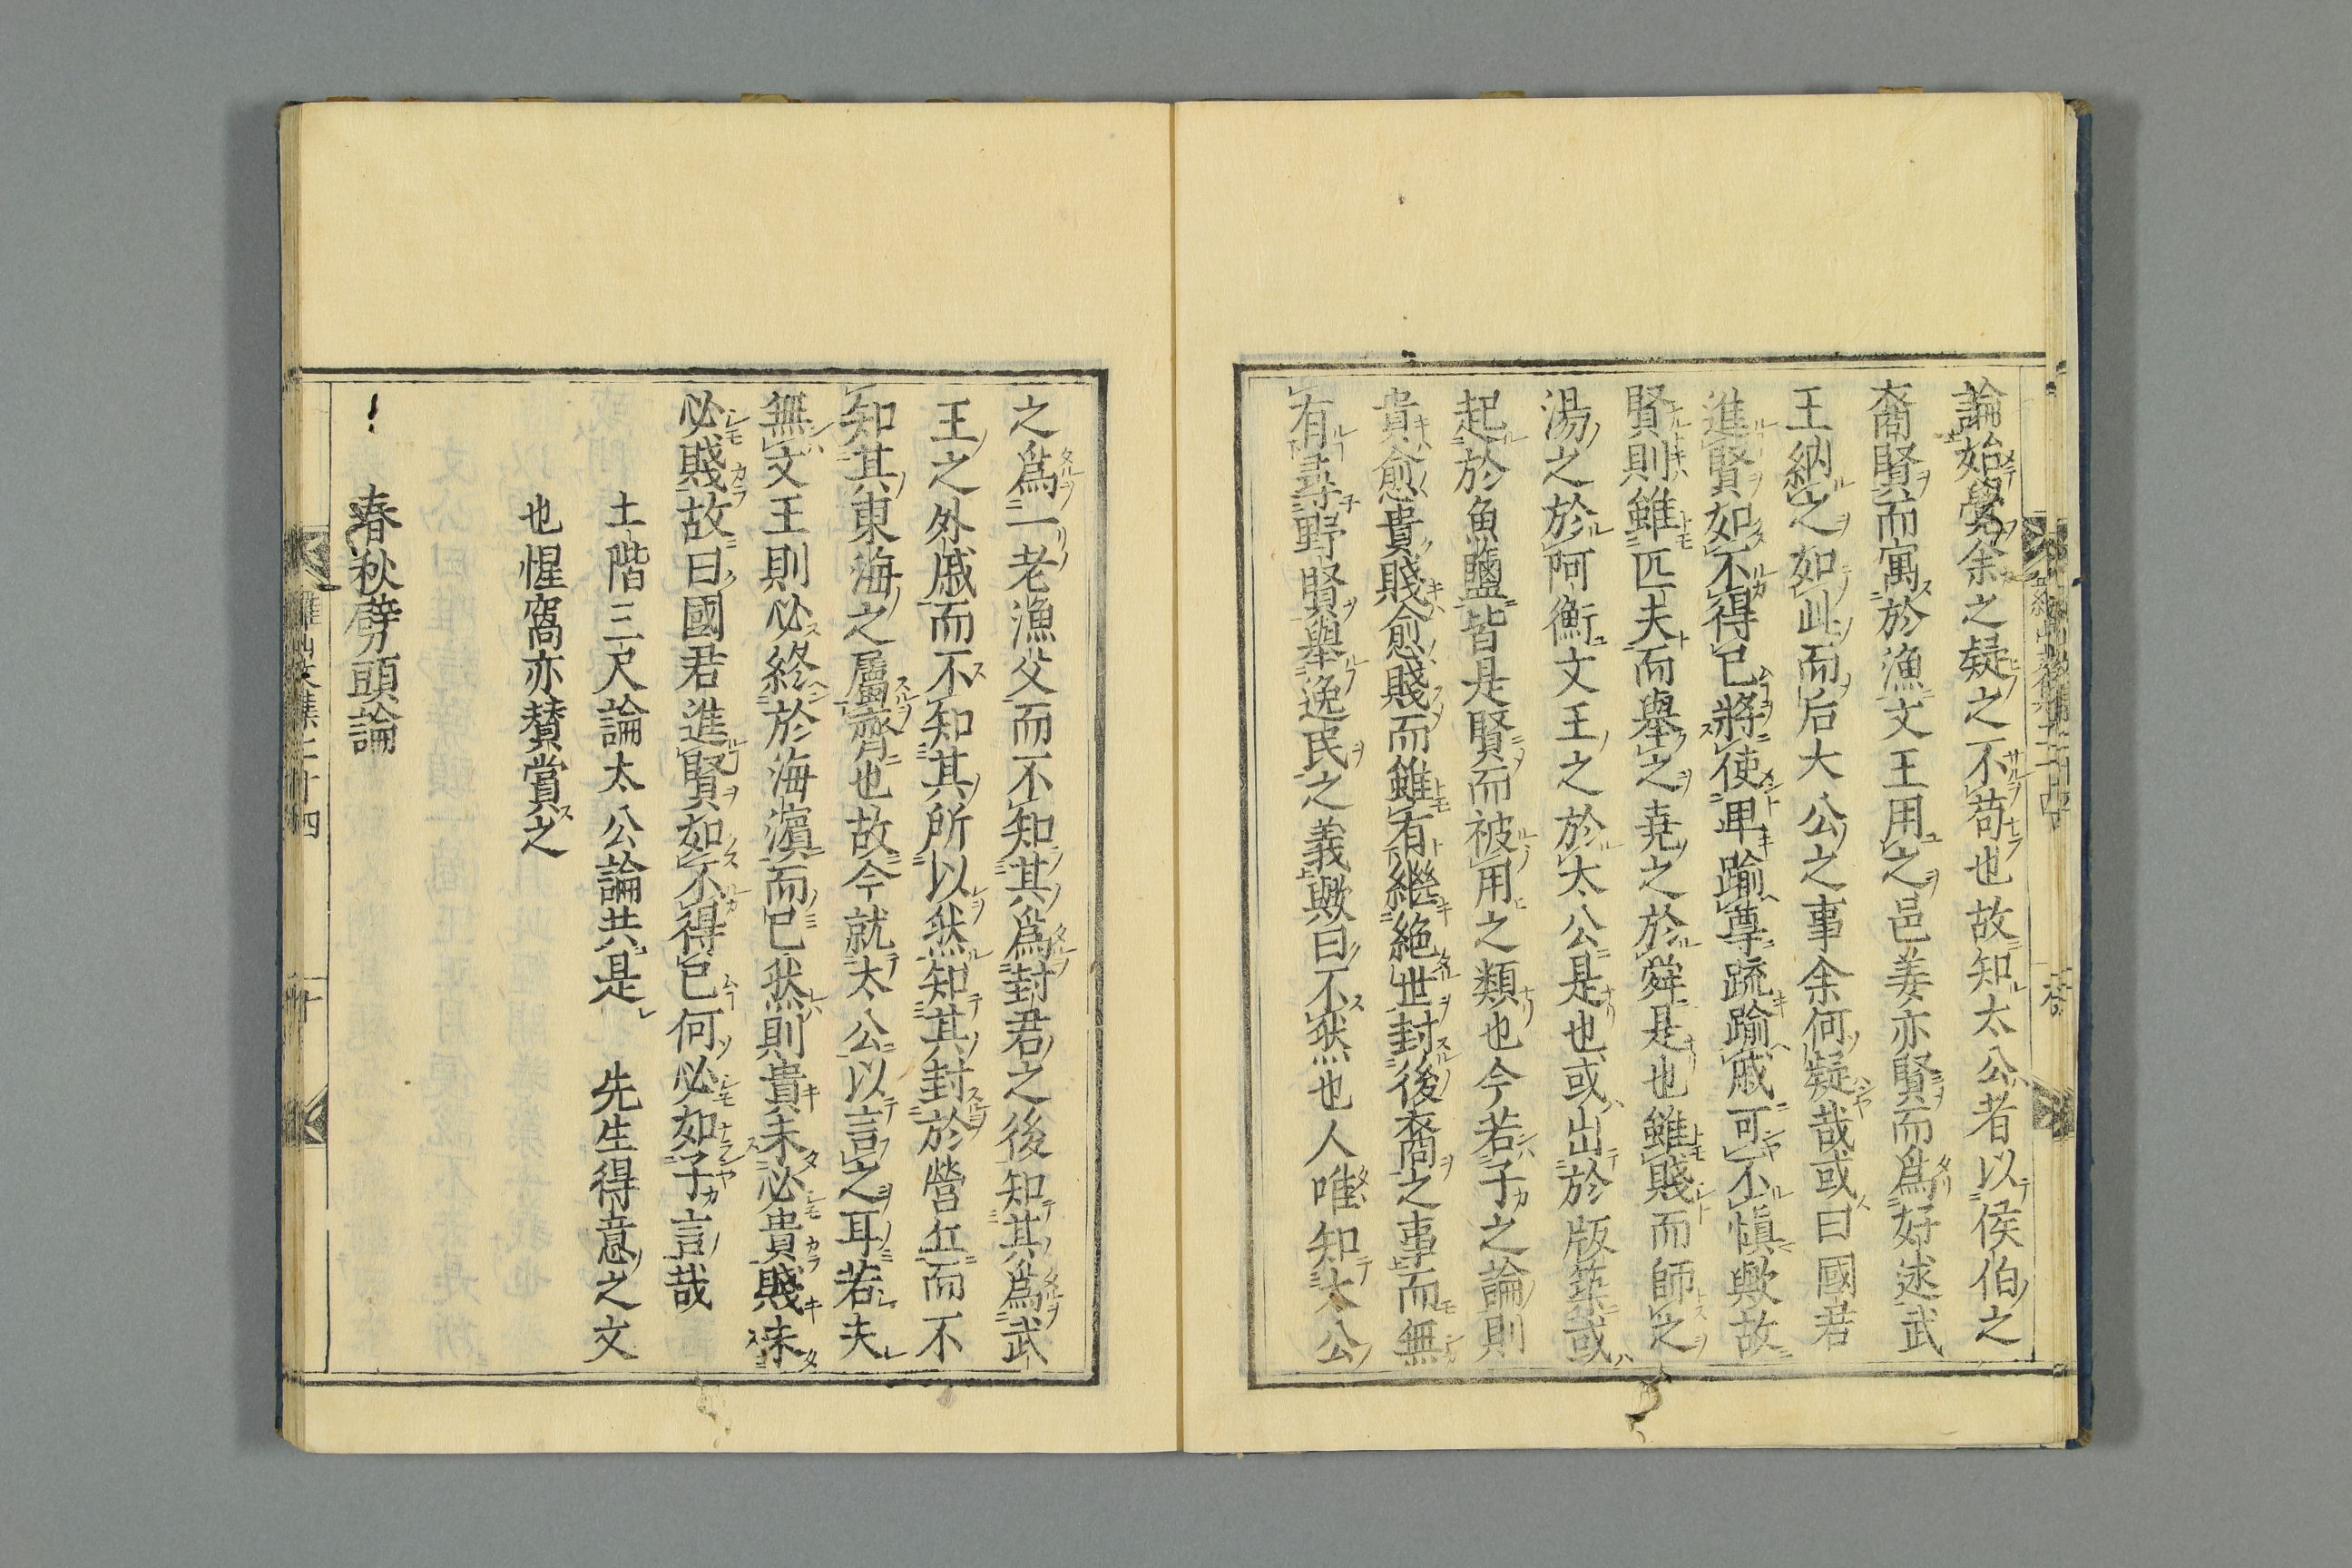 論始覺余之疑之不苟也故知太公者以侯伯之
裔賢而寓於漁文王用之邑姜亦賢而爲好逑武
王納之如此而后大公之事余何疑哉或曰國君
進賢如不得已將使卑踰尊疏踰戚可不愼歟故
賢則雖匹夫而舉之堯之於舜是也雖賤而師之
湯之於阿衡文王之於太公是也或出於版築或
起於魚鹽皆是賢而被用之類也今若子之論則
貴愈貴賤愈賤而雖有繼絶世封後裔之事而無
有尋野賢舉逸民之義歟曰不然也人唯知太公
之爲一老漁父而不知其爲封君之後知其爲武
王之外戚而不知其所以然知其封於營丘而不
知其東海之屬齊也故今就太公以言之耳若夫
無文王則必終於海濵而已然則貴未必貴賤未
必賤故曰國君進賢如不得已何必如子言哉
土階三尺論太公論共是 先生得意之文
也惺窩亦賛賞之
春秋劈頭論
羅山文集二十四
十